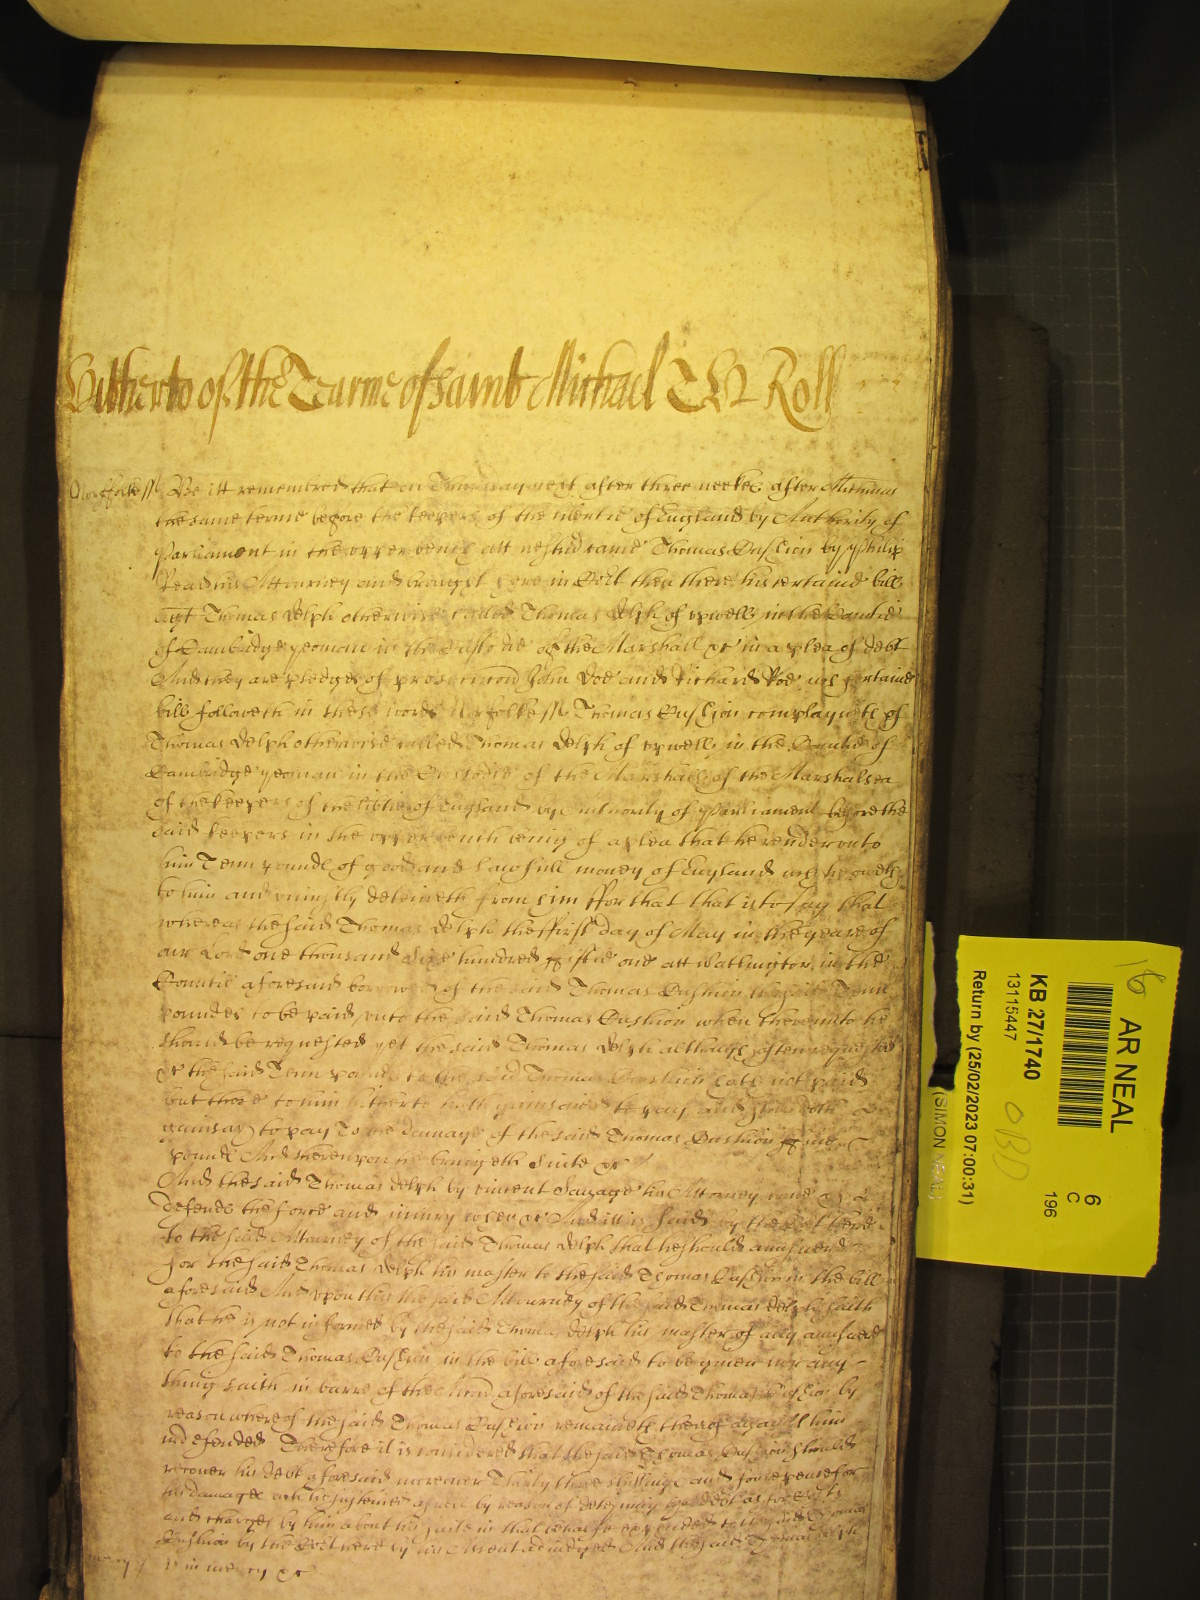 Hitherto of the Tearme of saint Michael Roll
Norffolke ss Be itt remembred that on Thursday next after three weekes after Michmas
the same terme before the keepers of the libertie of England by Authority of
Parliament in the upper bench att Westmr came Thomas Cushion by Philip
Read his Attourney and brought here in Cort then there his certaine bill
agt Thomas Delph otherwise called Thomas Delph of upwell in the Countie
of Cambridge yeoman in the Custodie of the Marshall &c in a plea of debt
And they are pledges of prosecucon John Doe and Richard Roe wch certaine
bill followeth in these words Norfolke ss Thomas Cushion complayneth of
Thomas Delph otherwise called Thomas Delph of upwell in the Countie of
Cambridge yeoman in the Custodie of the Marshall of the Marshalsea
of the keepers of the libtie of England by Authority of Parliament before the
said keepers in the upper bench being of a plea that he render unto
him Tenn pounds of good and lawfull money of England wch he oweth
to him and uniustly deteineth from him ffor that that is to say that
whereas the said Thomas Delph the ffirst day of May in the yeare of
our Lord one thousand Sixe hundred ffiftie one att Watlington in the
Countie aforesaid borrowed of the said Thomas Cushion the said Tenn
poundes to be paid unto the said Thomas Cushion when thereunto he
should be requested yet the said Thomas Delph although often requested
&c the said Tenn pounds to the said Thomas Cushion hath not paid
but those to him hitherto hath gainsaied to pay and still doth
gainsay to pay To the damage of the said Thomas Cushion ffive
pounds And thereupon he bringeth Suite &c
And the said Thomas Delph by vincent Savage his Attorney come &
defends the force and iniury when &c And itt is said by the Cort here
to the said Attourney of the said Thomas Delph that he should answere
for the said Thomas Delph his master to the said Thomas Cushion in the bill
aforesaid And upon this the said Attourney of the said Thomas Delph saith
that he is not informed by the said Thomas Delph his master of any answere
to the said Thomas Cushion in the bill aforesaid to be given nor any
thing saith in barre of the Accon aforesaid of the said Thomas Cushion by
reason whereof the said Thomas Cushion remaineth thereof against him
undefended Therefore it is considered that the said Thomas Cushion should
recover his debt aforesaid moreover Thirty three shillings and foure pence for
his damages wch he susteined aswell by reason of deteyning the debt as for costs
and charges by him about his suite in that behalfe expended to the said Thomas
Cushion by the Cort here by his Assent adiudged And the said Thomas Delph
mercy is in mercy &c
16
AR NEAL
KB 27/1740
13115447
OBD
6
C
196
Return by (25/02/2023 07:00:31)
(SIMON NEAL)